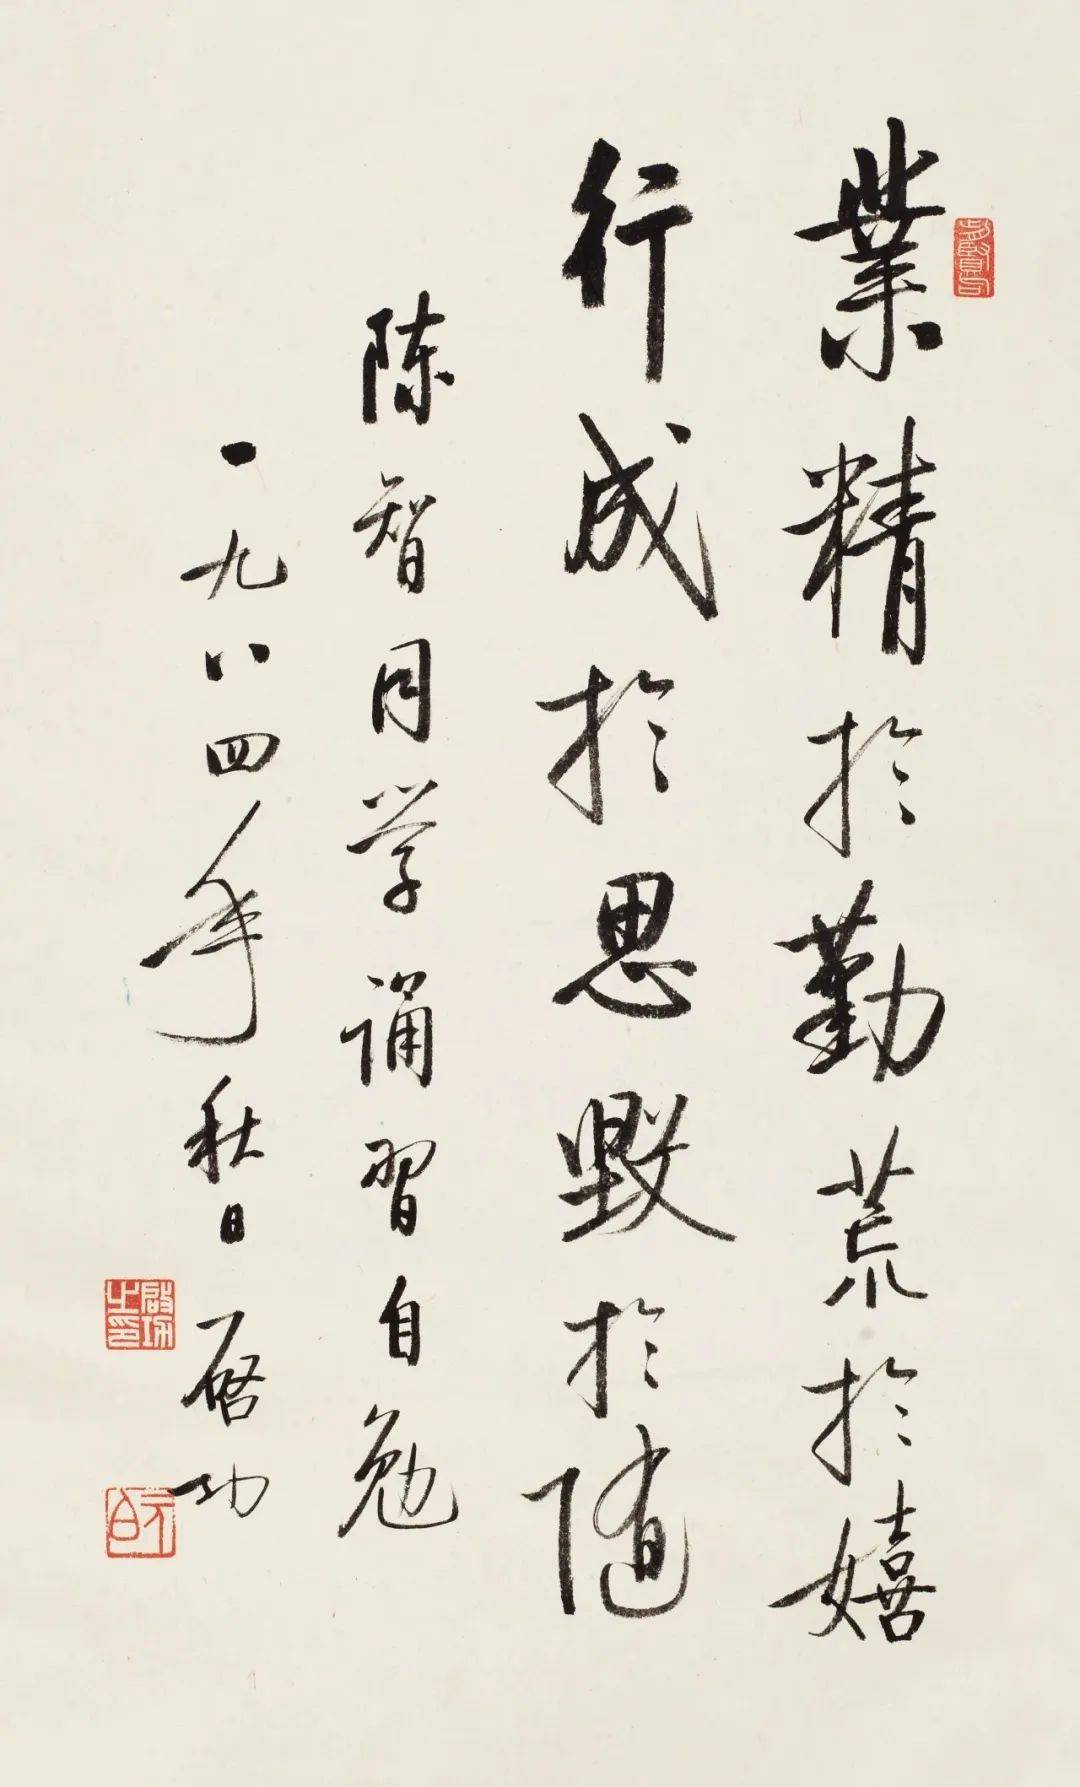 業精於勤荒於嬉
行成於思毁於随
陈智同学诵習自勉
一九八四年秋日启功
啟功之印
元白